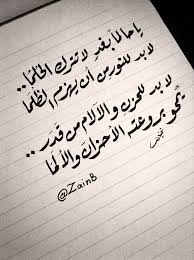 يا حالماً بغدٍ لا تترك الحلما ..
لا بد للنور من أن يهزم الظلما
لا بد للحزن والآلام من قدر ..
يمحو بروعته الأحزان والألما
@Zain8